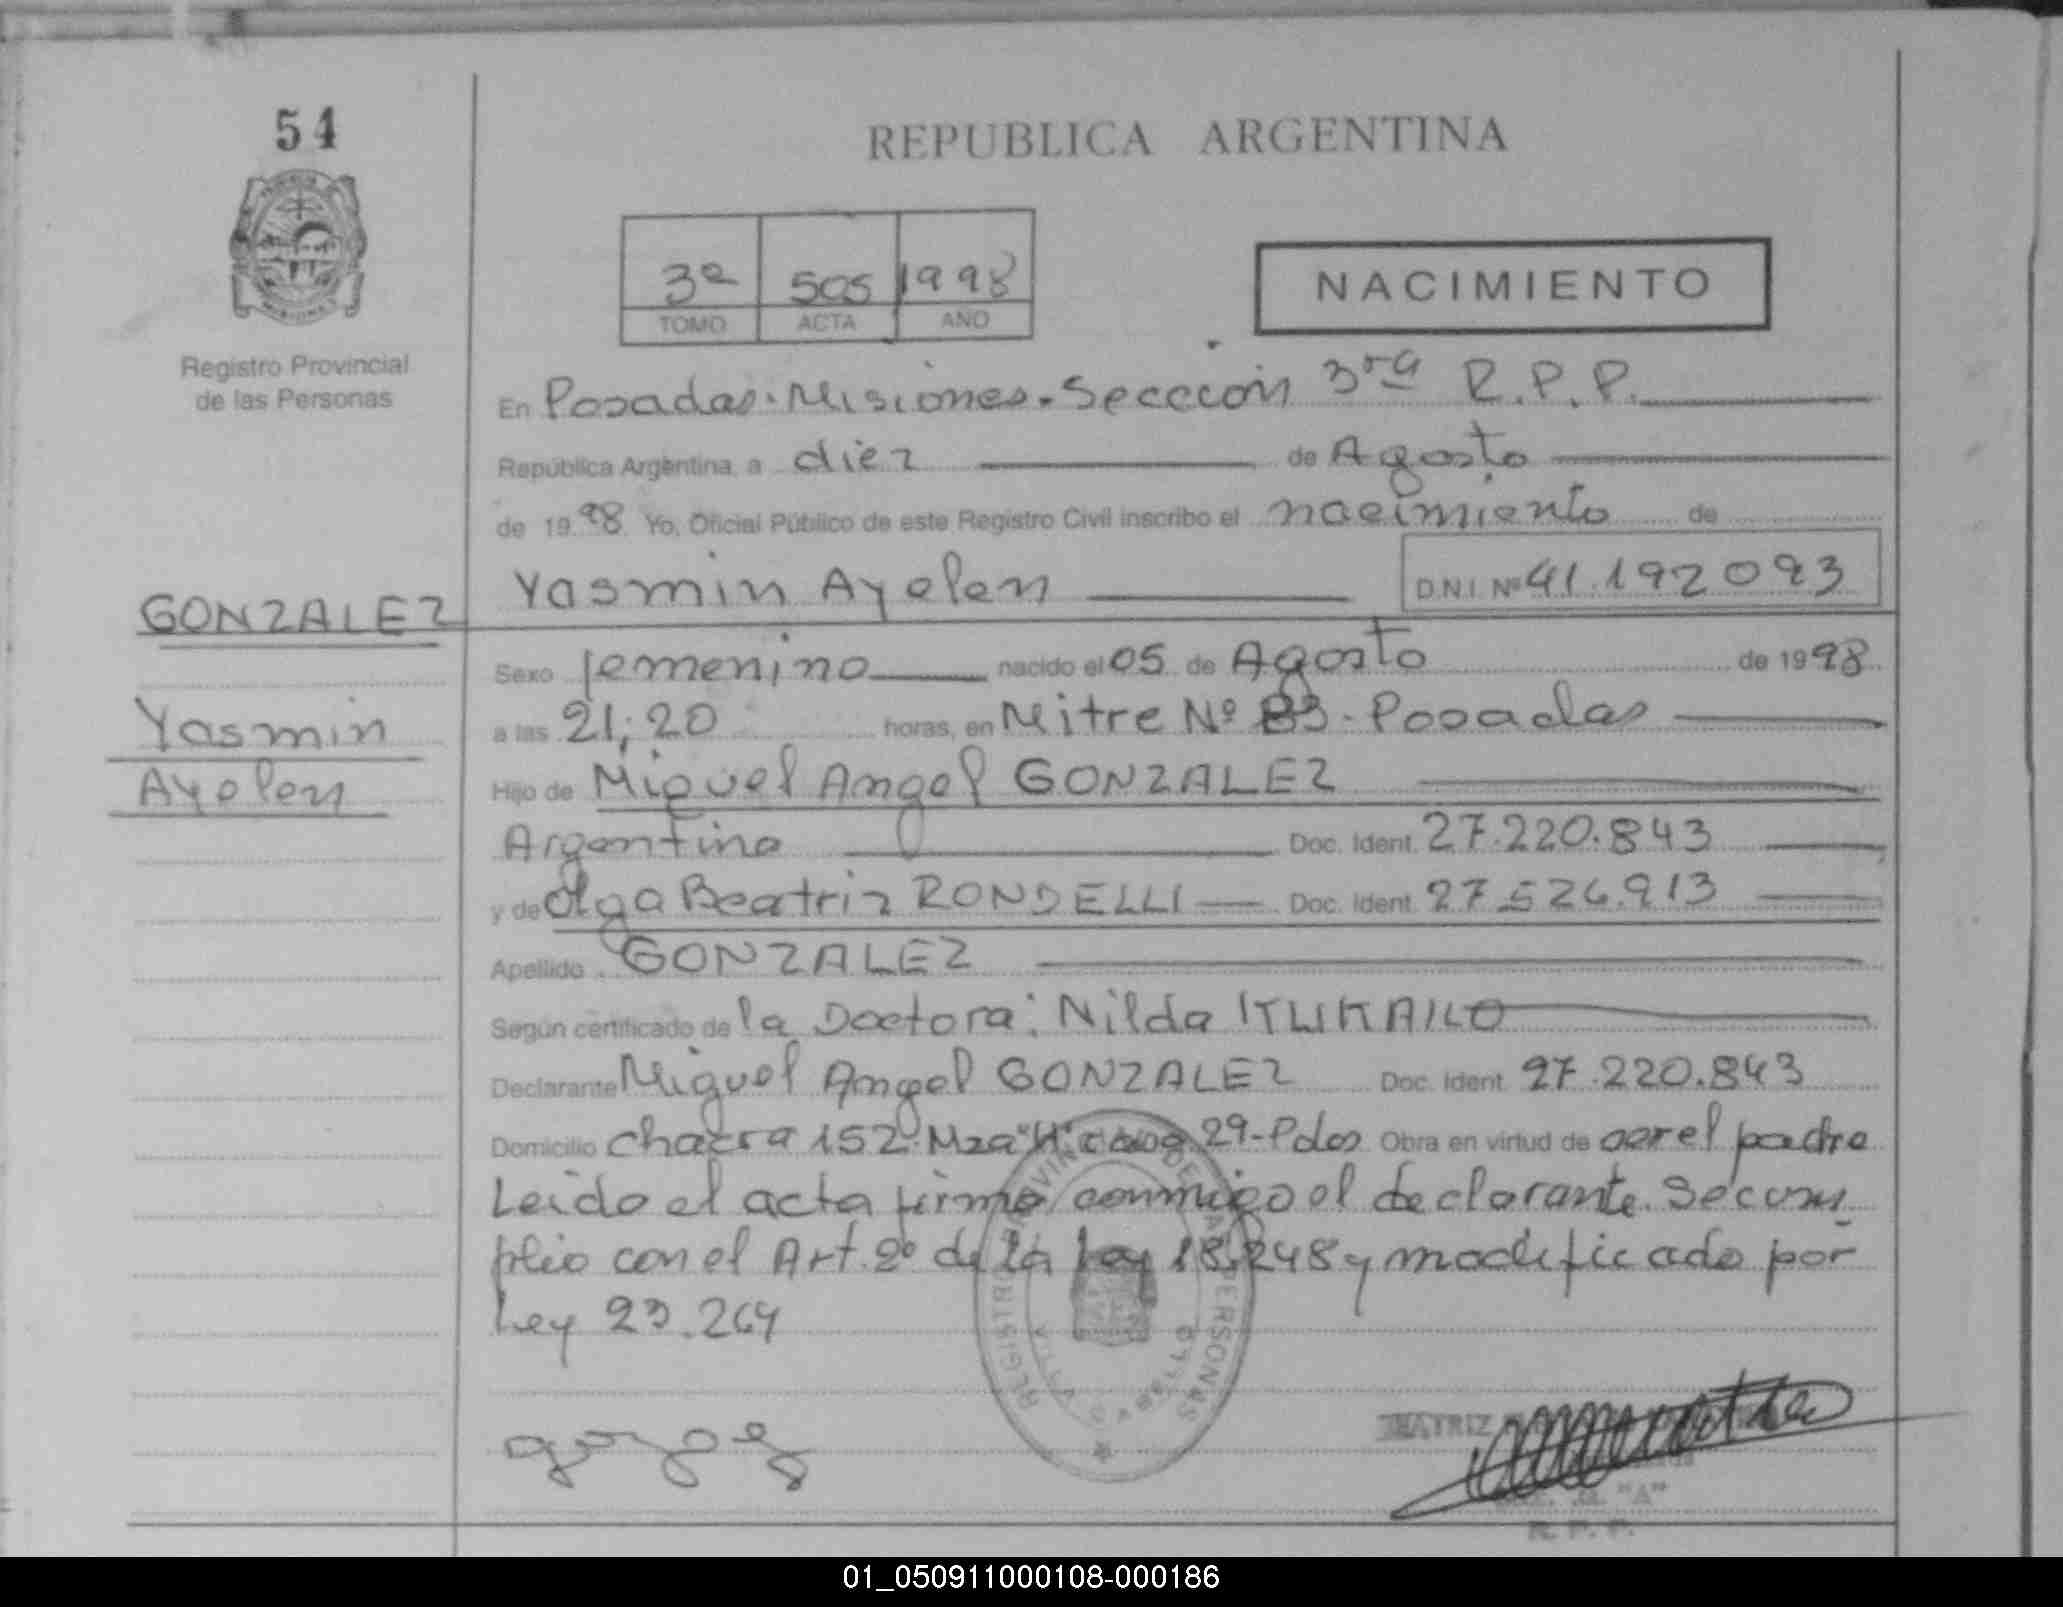 54
REPUBLICA ARGENTINA
3ª 505 1998
TOMO ACTA AÑO
NACIMIENTO
Registro Provincial
de las Personas
En Posadas. Misiones. Seccción 3ra R.P.P.
República Argentina, a diez de Agosto
de 19 98 Yo, Oficial Público de este Registro Civil inscribo el nacimiento de
Yasmin Ayelen D.N.I. Nº 41.192093
GONZALEZ
Yasmin
Ayelen
Sexo femenino nacido el 05 de Agosto de 19 98
a las 21;20 horas, en Mitre Nº - Posadas
Hijo de Miguel Angel GONZALEZ
Argentino Doc. Ident. 27.220.843
y de Olga Beatriz RONDELLI Doc. Ident. 27.526.913
Apellido GONZALEZ
Según certificado de la Doctora: Nilda
Declarante Miguel Angel GONZALEZ Doc. Ident. 27.220.843
Domicilio Chacra 152. Mza "H" casa 29-Pdas Obra en virtud de ser el padre
Leido el acta firma conmigo el declarante. Se cum
plio con el Art. 2º de la Ley 18.248 y modificado por
Ley 23.264
REGISTRO PROVINCIAL DE LAS PERSONAS
R. P. P.
01_050911000108-000186